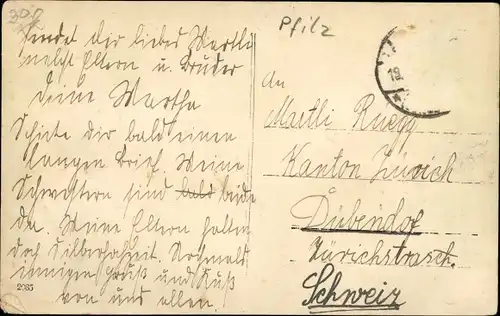 30,-
Pfilz
sendet dir liebes Martli
nebst Eltern u. Bruder
deine Martha
Schicke dir bald einen
langen Brief. Meine
Schwestern sind bald beide
da. Meine Eltern halten
doch Silberhochzeit. Nochmals
innigen Gruß und Kuß
von uns allen.
2085
19.
An
Martli Ruegg
Kanton Zürich
Dübendof
Zürichstrasch.
Schweiz